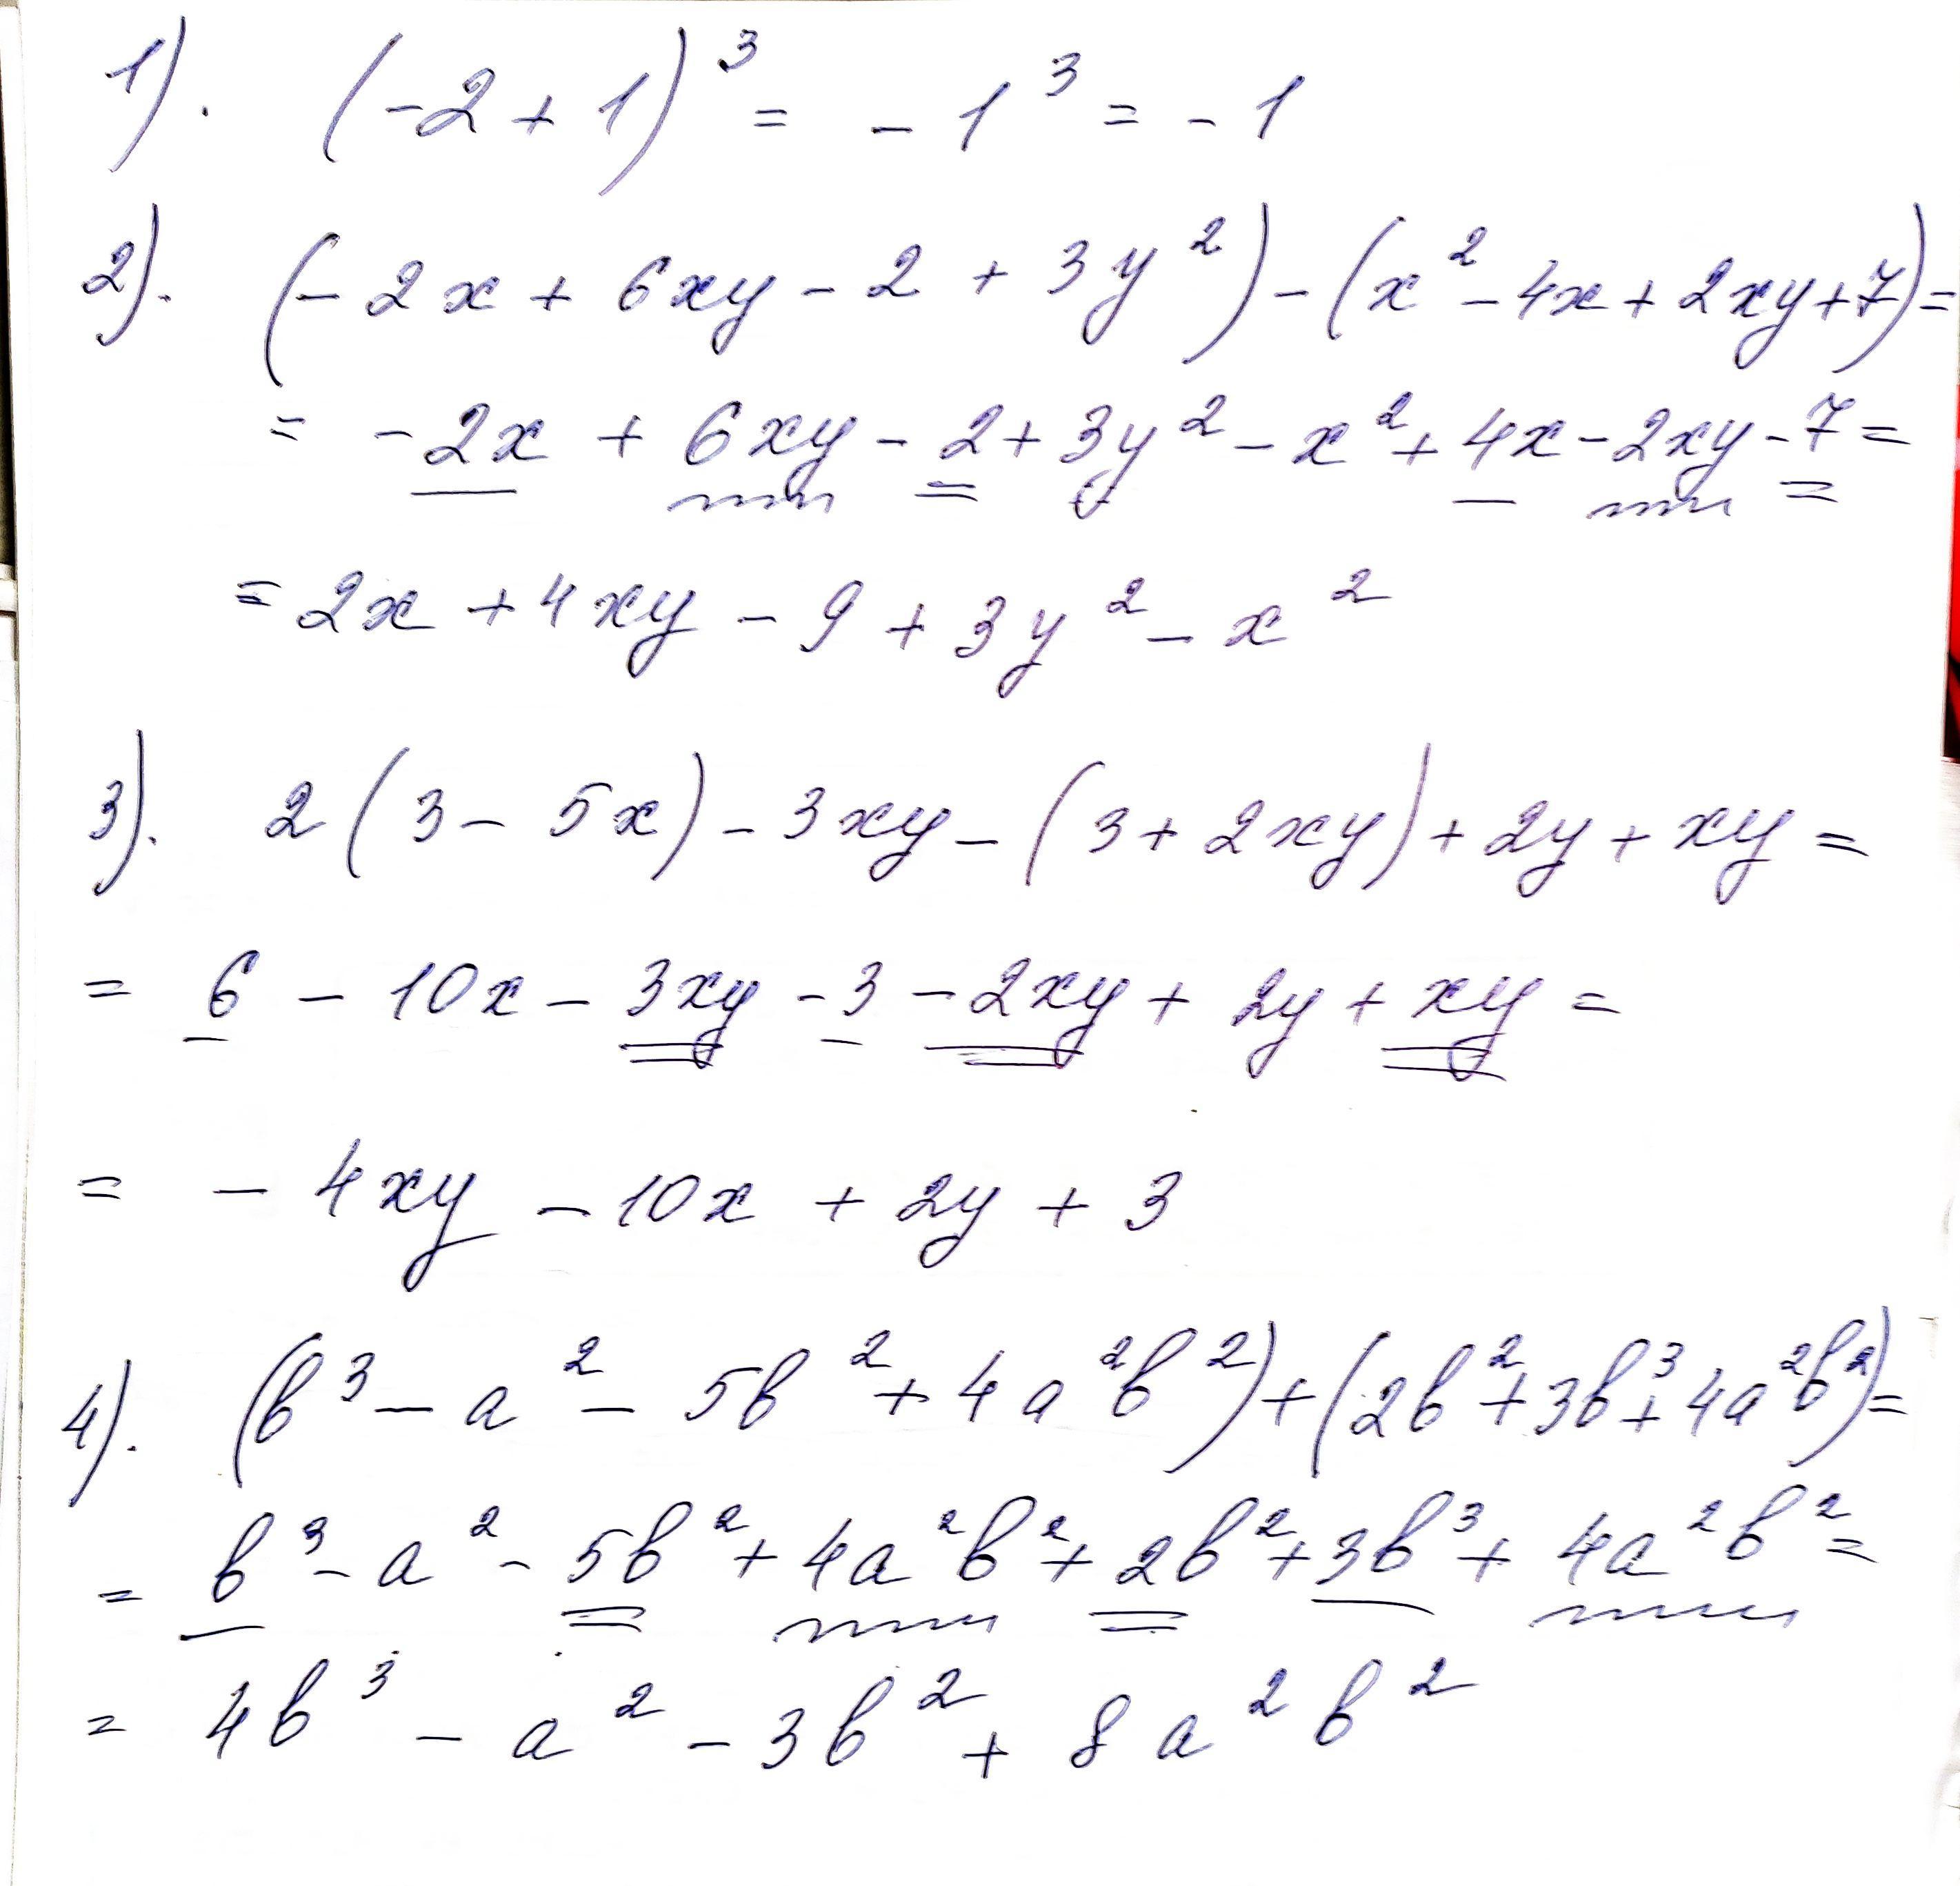 1). (-2+1)³ = -1³ = -1
2). (-2x + 6xy - 2 + 3y²) - (x² - 4x + 2xy + 7) =
= -2x + 6xy - 2 + 3y² - x² + 4x - 2xy - 7 =
= 2x + 4xy - 9 + 3y² - x²
3). 2(3 - 5x) - 3xy - (3 + 2xy) + 2y + xy =
= 6 - 10x - 3xy - 3 - 2xy + 2y + xy =
= - 4xy - 10x + 2y + 3
4). (b³ - a² - 5b² + 4a²b²) + (2b² + 3b³ + 4a²b²) =
= b³ - a² - 5b² + 4a²b² + 2b² + 3b³ + 4a²b² =
= 4b³ - a² - 3b² + 8a²b²